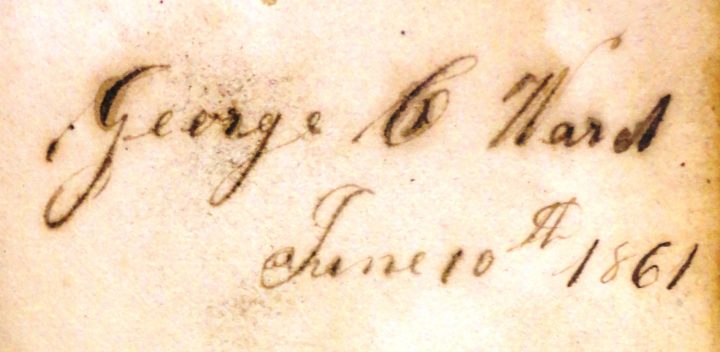 George C Ward
June 10th 1861